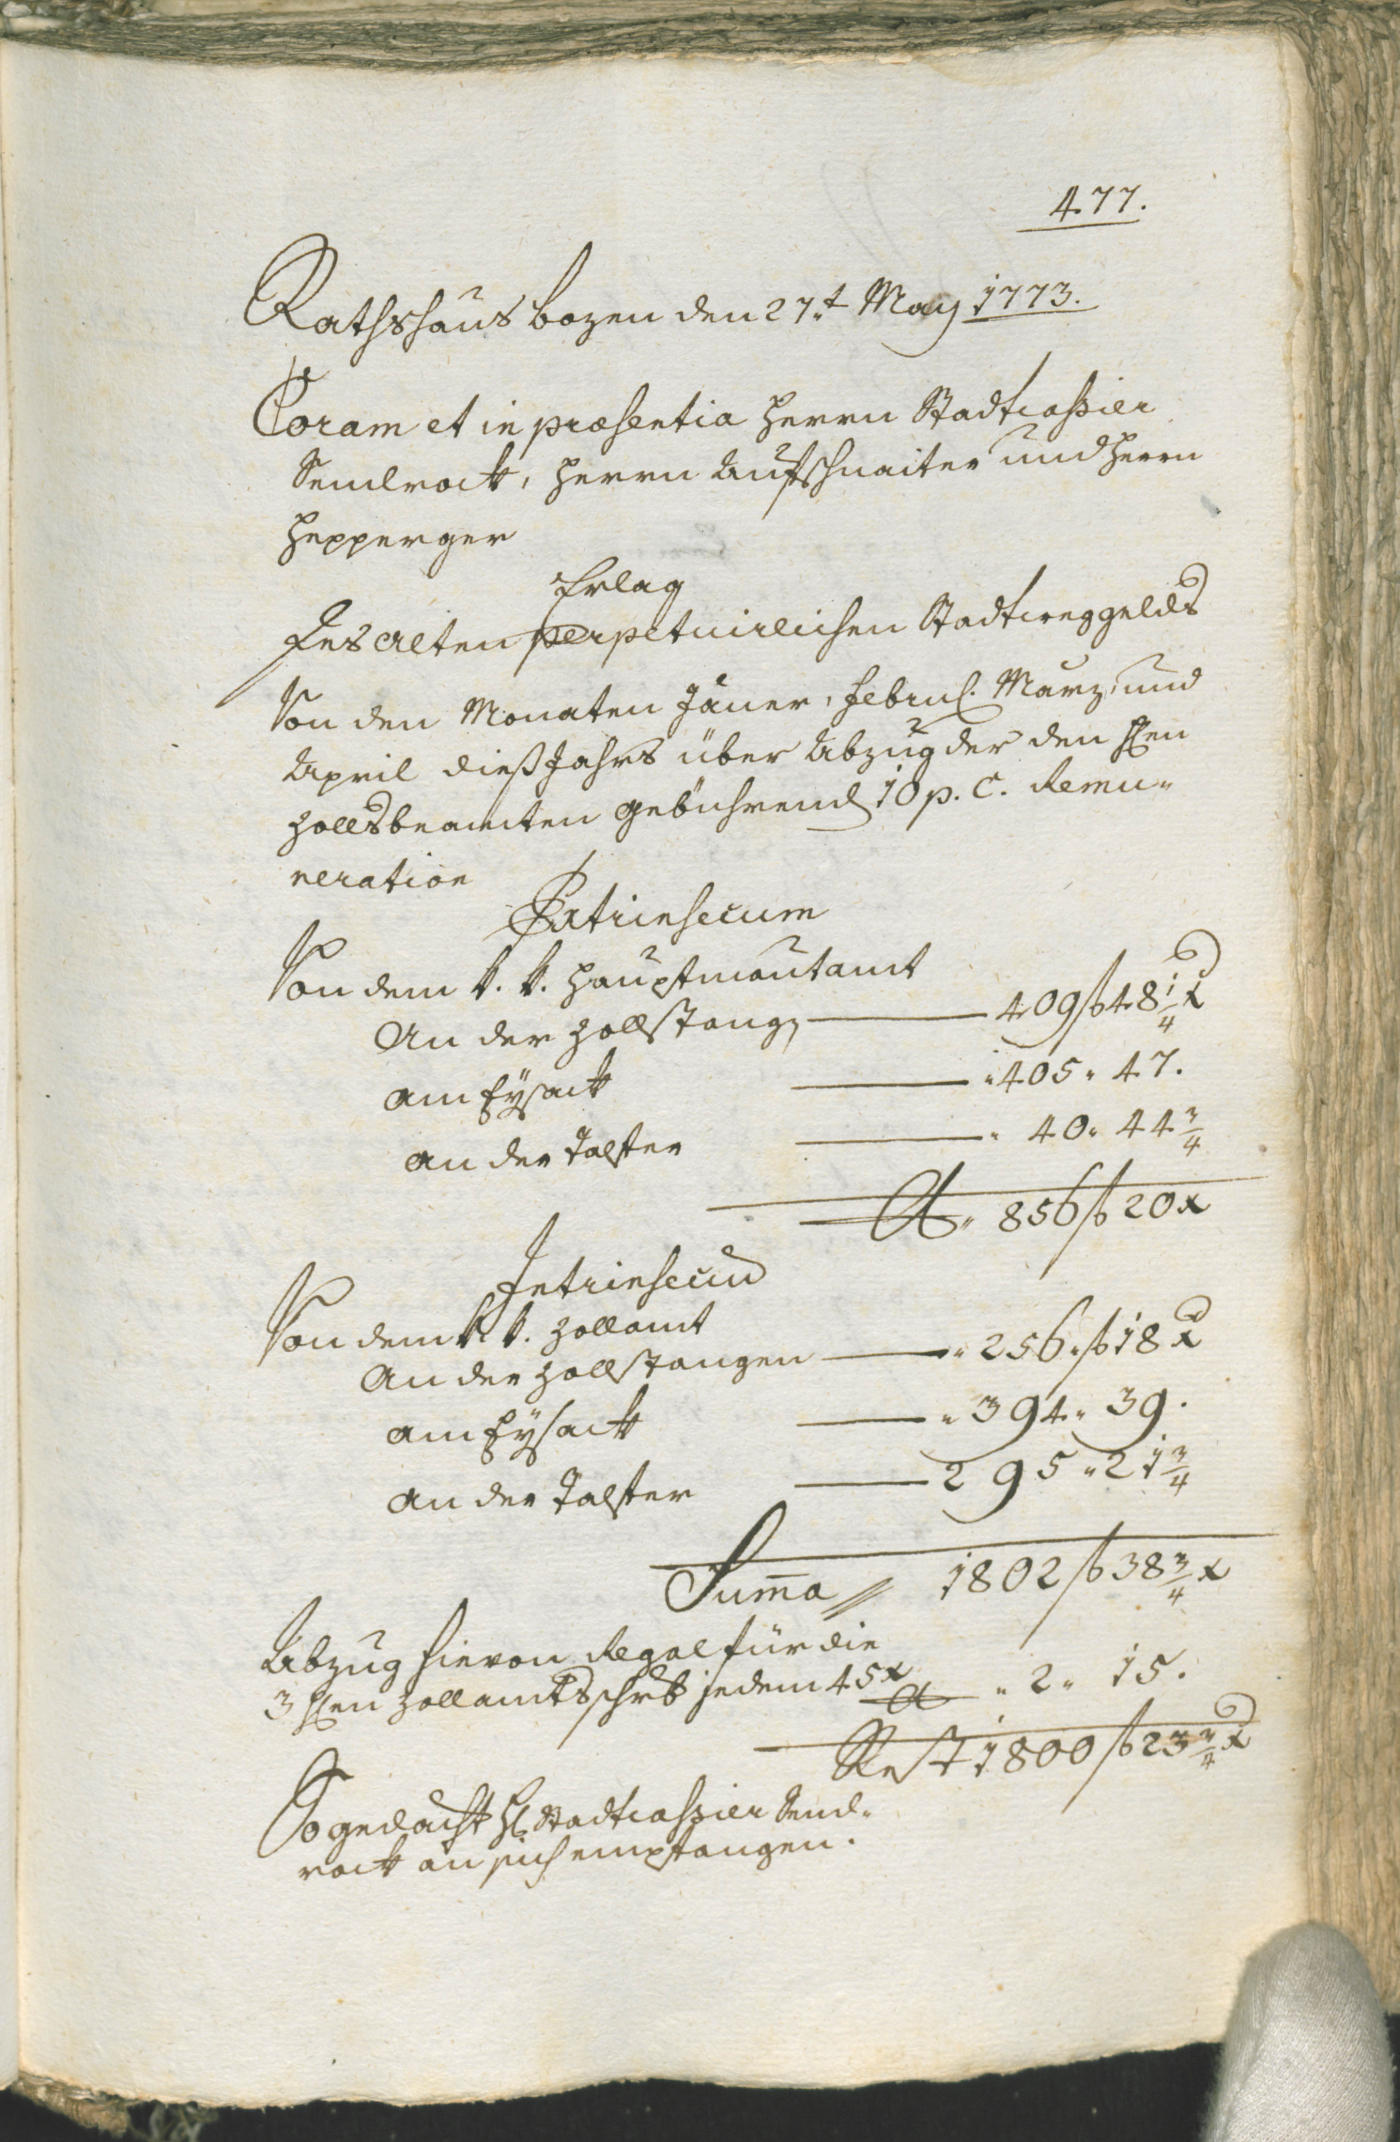 477.
Rathshaus bozen den 27.t May 1773.
Coram et in præsentia Herrn Stadtcassier
Sendrock, Herrn Aufschnaiter und Herrn
Hepperger
Erlag
Des alten perpetuirlichen Stadtweggelds
Von den Monaten Jäner, Februl. März, und
April dieß Jahrs über Abzug der den Hen
Zollsbeamten gebührend 10 p. C. Remu-
neration
Extrinsecum
Von dem k. k. Hauptmautamt
An der Zollstang 409 f 48 1/4 x
am Eysack 405. 47.
an der Talfer 40. 44 3/4
856 f 20 x
Intrinsecum
Von dem k. k. Zollamt
An der Zollstangen 256. f 18 x
am Eysack 394. 39.
an der Talfer 295. 21 3/4
Suma 1802 f 38 3/4 x
Abzug hievon Regal für die
3 Hen Zollamtsschrb jedem 45 x 2. 15.
Rest 1800 f 23 3/4 x
So gedacht H. Stadtcassier Send-
rock an sich empfangen.